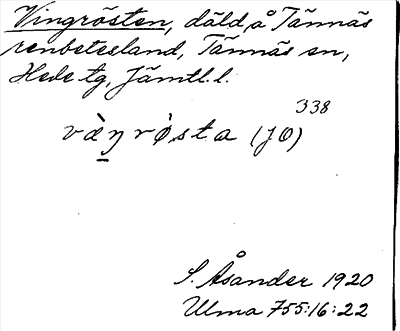 Vingrösten, däld, å Tännäs
renbetesland, Tännäs sn,
Hede tg, Jämtl. l.
338
væ̀ŋrø̀sta (JO)
S. Åsander 1920
Ulma 755:16:22